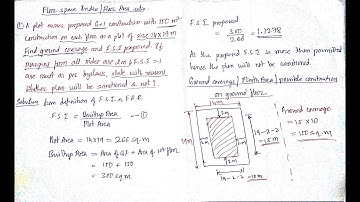 Floor space Index / Floor Area ratio
① A plot owner proposed G+1 construction with 150 m²
construction on each floor on a plot of size 14×19 m
Find ground coverage and F.S.I proposed. If
margins from all sides are 2m & F.S.I = 1
are must as per bylaws, state with reasons
whether plan will be sanctioned or not?
Solution from definition of F.S.I or F.A.R.
F.S.I. = Builtup Area / Plot Area — ①
Plot Area = 14×19 = 266 sq.m
Builtup Area = Area of G.F + Area of 1st floor
= 150 + 150
= 300 sq.m
F.S.I proposed
= 300 / 266 = 1.1278
As the proposed F.S.I. is more than permitted
hence the plan will not be sanctioned.
Ground coverage / Plinth Area / possible construction
on ground floor
14m
2m
19m
2m
2m
2m
19-2-2
= 15m
14-2-2 = 10m
Ground coverage
= 15 × 10
= 150 sq.m